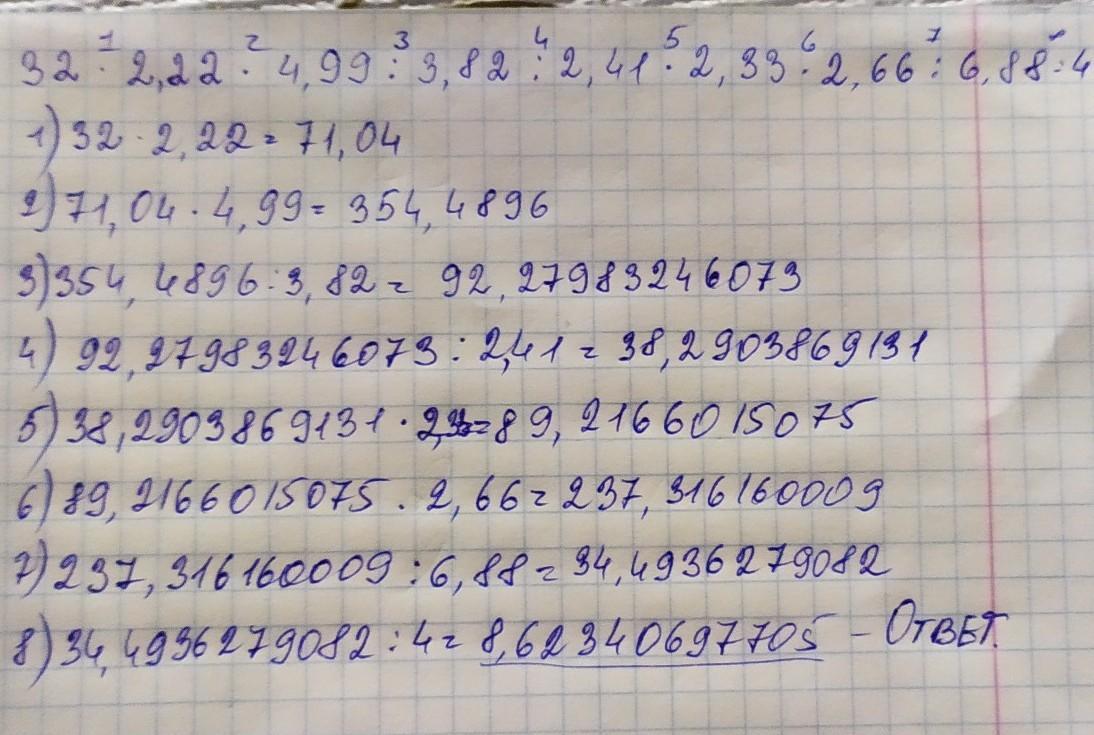 32 · 2,22 · 4,99 : 3,82 : 2,41 · 2,33 · 2,66 : 6,88 : 4
1) 32 · 2,22 = 71,04
2) 71,04 · 4,99 = 354,4896
3) 354,4896 : 3,82 = 92,27983246073
4) 92,27983246073 : 2,41 = 38,2903869131
5) 38,2903869131 · 2,33 = 89,2166015075
6) 89,2166015075 · 2,66 = 237,316160009
7) 237,316160009 : 6,88 = 34,4936279082
8) 34,4936279082 : 4 = 8,62340697705 – ОТВЕТ.